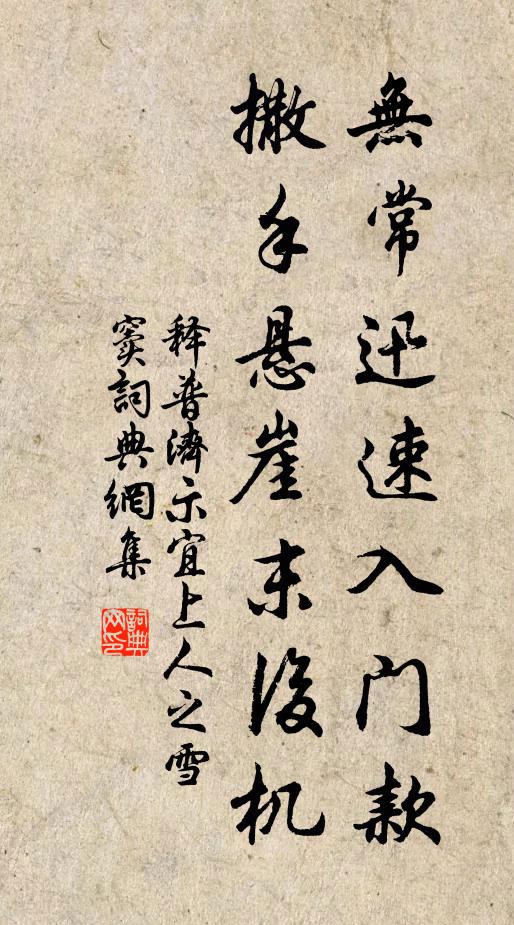 無常迅速入门款
撒手悬崖末後机
释普濟示宜上人之雪
窦詞典網集
詞典
网印